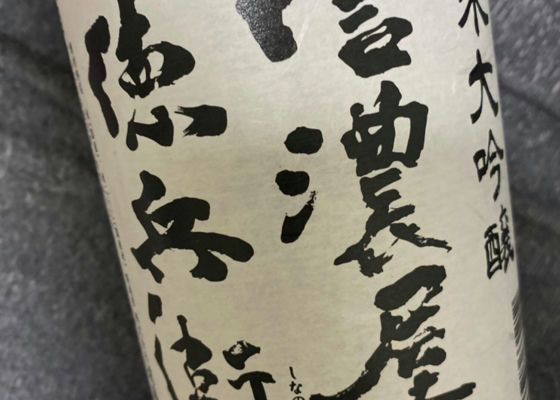 米大吟醸
信濃屋
しなの
徳兵衛